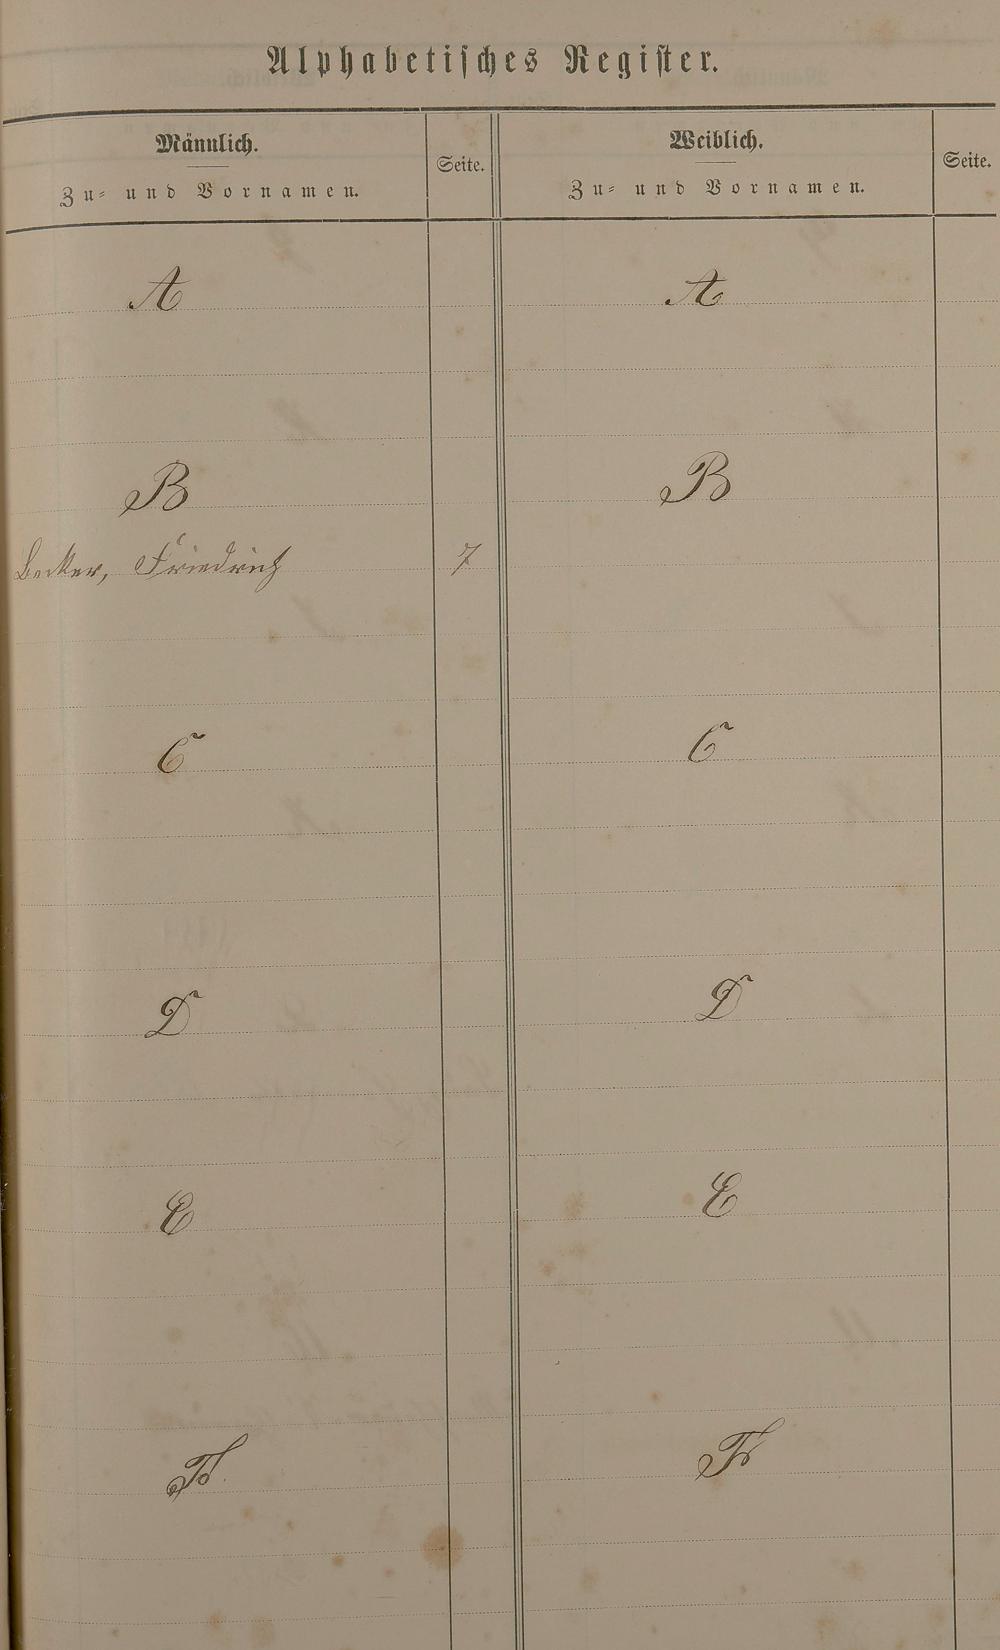 Alphabetisches Register.
Männlich.
Zu- und Vornamen.
Seite.
Weiblich.
Zu- und Vornamen.
Seite.
A
A
B
B
Becker, Friedrich 7
C
C
D
D
E
E
F
F